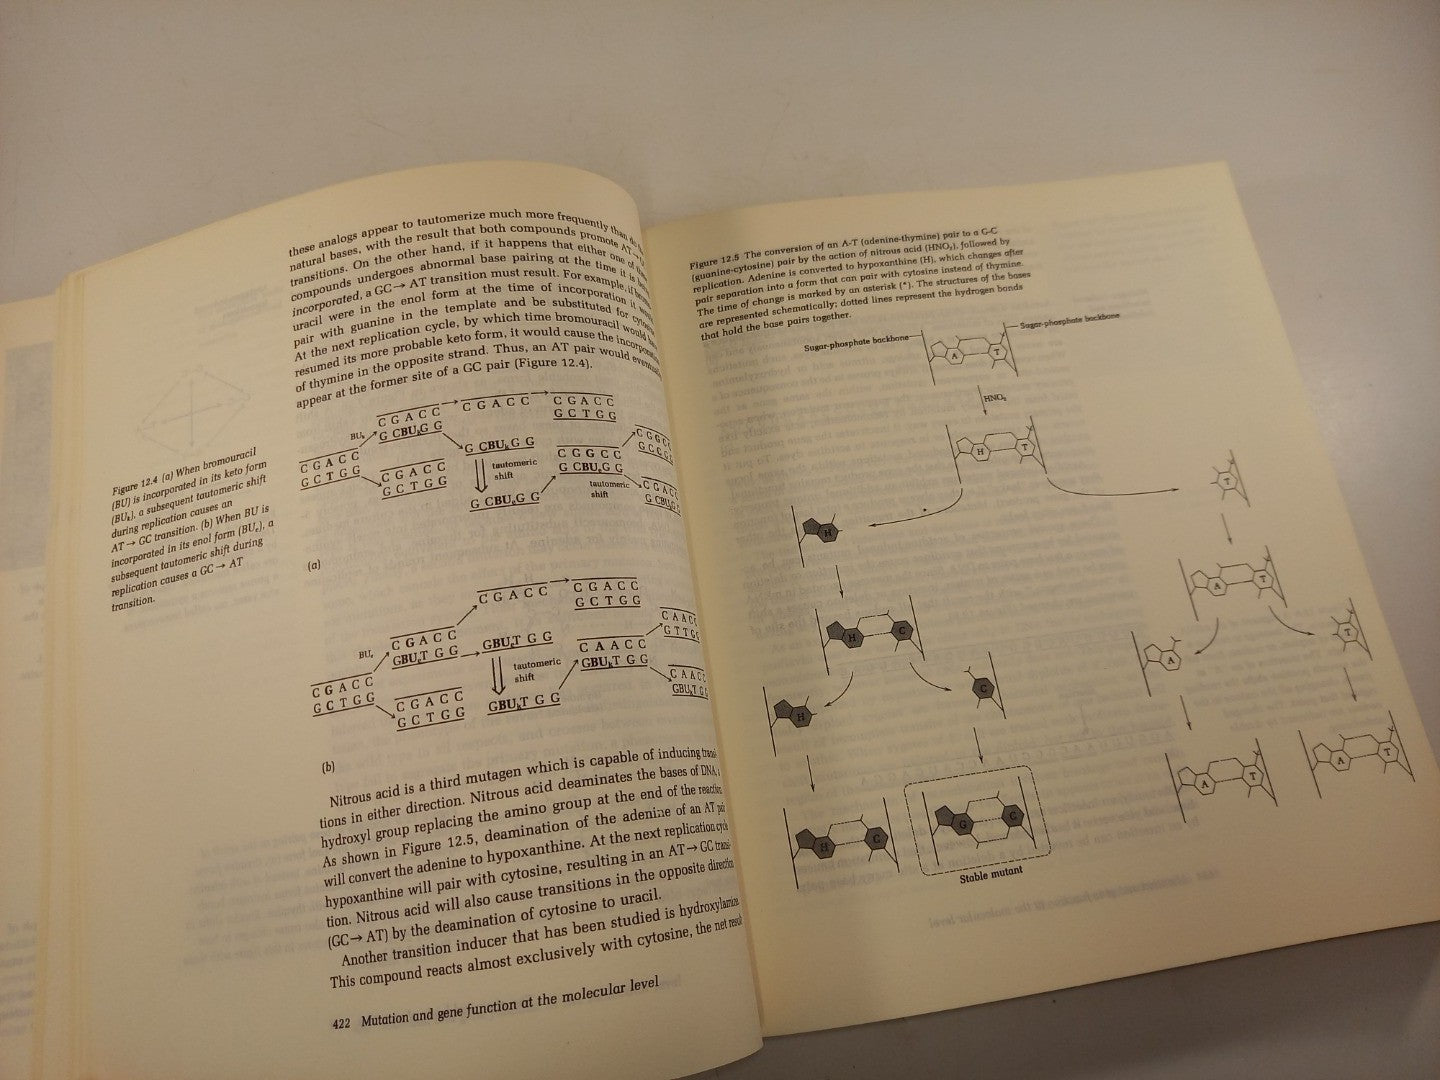 these analogs appear to tautomerize much more frequently than
natural bases, with the result that both compounds promote AT→
transitions. On the other hand, if it happens that either one of
compounds undergoes abnormal base pairing at the time it is
incorporated, a GC→ AT transition must result. For example, if
uracil were in the enol form at the time of incorporation it
pair with guanine in the template and be substituted for
At the next replication cycle, by which time bromouracil would
resumed its more probable keto form, it would cause the
of thymine in the opposite strand. Thus, an AT pair would eventually
appear at the former site of a GC pair (Figure 12.4).
Figure 12.4 (a) When bromouracil
(BU) is incorporated in its keto form
(BUₖ), a subsequent tautomeric shift
during replication causes an
AT→ GC transition. (b) When BU is
incorporated in its enol form (BUₑ), a
subsequent tautomeric shift during
replication causes a GC → AT
transition.
C G A C C
G C T G G
BUₖ
C G A C C
G CBUₖG G
C G A C C
G C T G G
C G A C C
C G A C C
G C T G G
G CBUₖG G
tautomeric
shift
G CBUₑG G
C G G C C
G CBUₑG G
tautomeric
shift
C G G C C
G C C G
C G A C
G CBUₖG
(a)
C G A C C
G C T G G
BUₑ
C G A C C
GBUₑT G G
C G A C C
G C T G G
C G A C C
C G A C C
G C T G G
GBUₑT G G
tautomeric
shift
GBUₖT G G
C A A C C
GBUₖT G G
C A A C C
G T T G G
C A A C C
GBUₖT G G
(b)
Nitrous acid is a third mutagen which is capable of inducing transi-
tions in either direction. Nitrous acid deaminates the bases of DNA, a
hydroxyl group replacing the amino group at the end of the reaction.
As shown in Figure 12.5, deamination of the adenine of an AT pair
will convert the adenine to hypoxanthine. At the next replication cycle
hypoxanthine will pair with cytosine, resulting in an AT→ GC transi-
tion. Nitrous acid will also cause transitions in the opposite direction
(GC→ AT) by the deamination of cytosine to uracil.
Another transition inducer that has been studied is hydroxylamine.
This compound reacts almost exclusively with cytosine, the net result
422 Mutation and gene function at the molecular level
Figure 12.5 The conversion of an A-T (adenine-thymine) pair to a G-C
(guanine-cytosine) pair by the action of nitrous acid (HNO₂), followed by
replication. Adenine is converted to hypoxanthine (H), which changes after
pair separation into a form that can pair with cytosine instead of thymine.
The time of change is marked by an asterisk (*). The structures of the bases
are represented schematically; dotted lines represent the hydrogen bonds
that hold the base pairs together.
Sugar-phosphate backbone
Sugar-phosphate backbone
A T
HNO₂
H T
*
H
T
H C
A T
H
C
A
T
H C
G C
A T
A T
Stable mutant